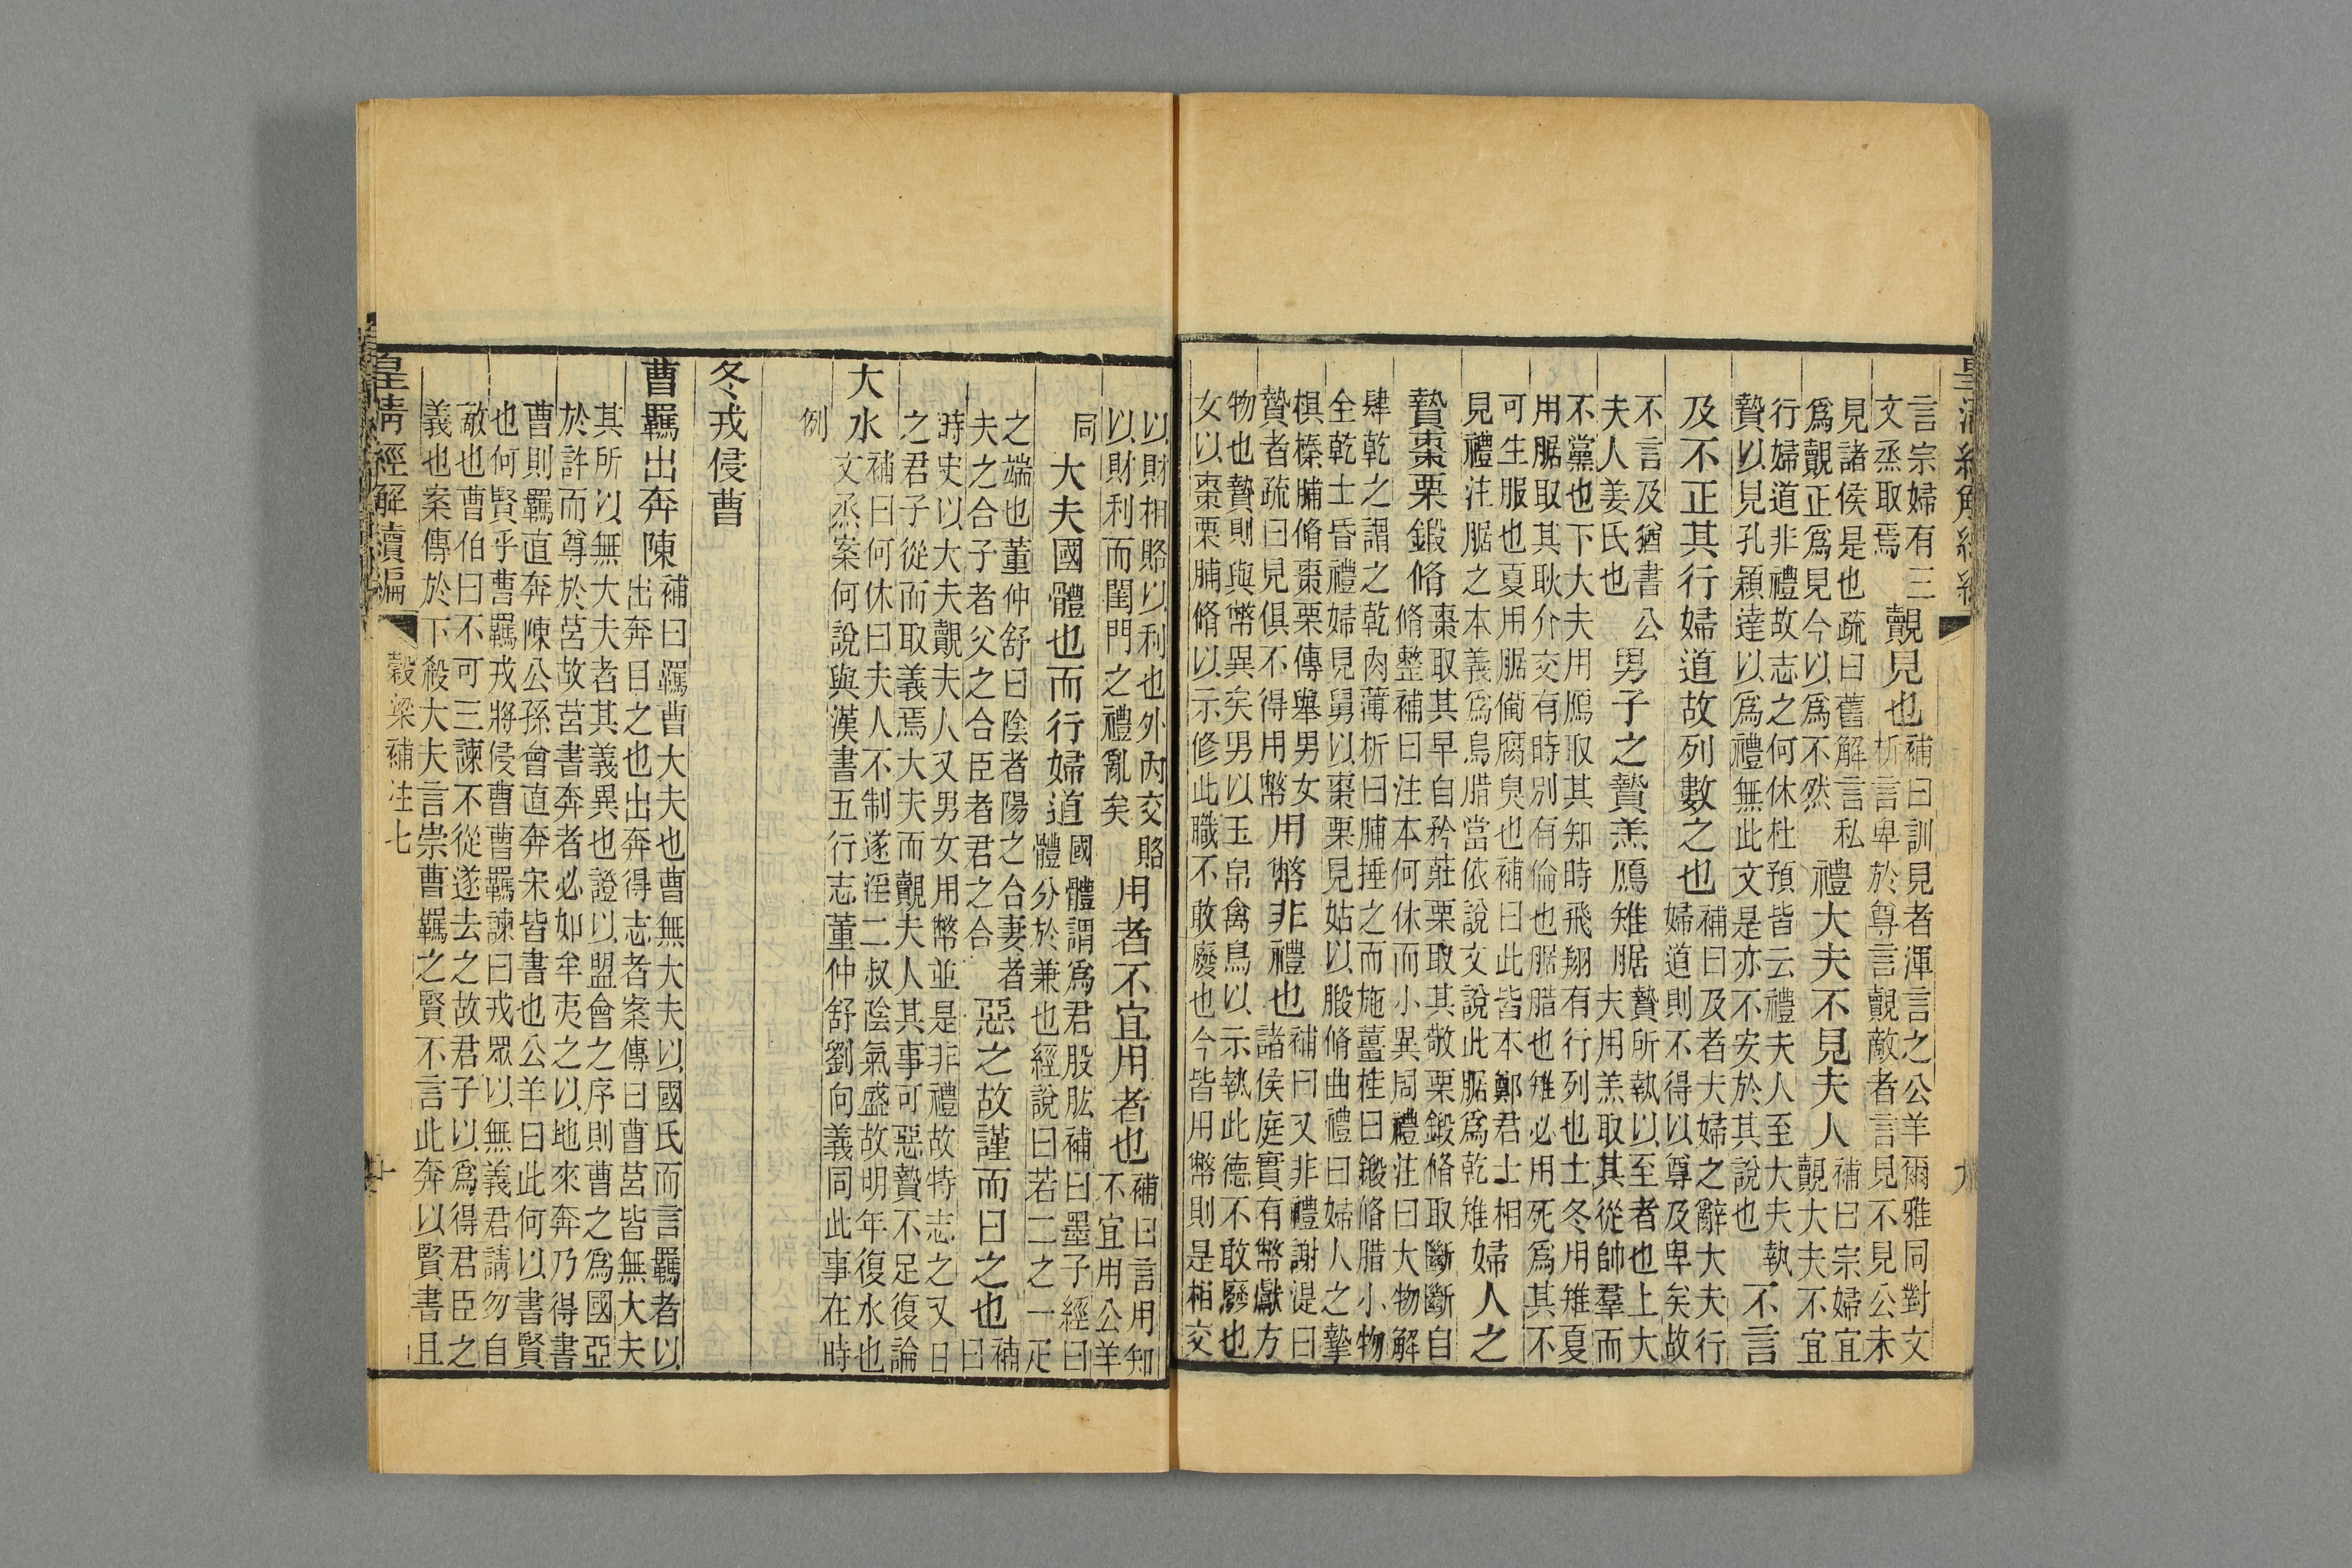 言宗婦有三
文烝取焉
覿見也
補曰訓見者渾言之公羊爾雅同對文
析言卑於尊言覿敵者言見不見公未
見諸侯是也疏曰舊解言私
爲覿正爲見今以爲不然
禮大夫不見夫人
補曰宗婦宜
覿大夫不宜
行婦道非禮故志之何休杜預皆云禮夫人至大夫執
贄以見孔穎達以爲禮無此文是亦不安於其說也
不言
及不正其行婦道故列數之也
補曰及者夫婦之辭大夫行
婦道則不得以尊及卑矣故
不言及猶書公
夫人姜氏也
男子之贄羔鴈雉腒
贄所執以至者也上大
夫用羔取其從帥羣而
不黨也下大夫用鴈取其知時飛翔有行列也士冬用雉夏
用腒取其耿介交有時別有倫也腒腊也雉必用死爲其不
可生服也夏用腒備腐臭也補曰此皆本鄭君士相
見禮注腒之本義爲鳥腊當依說文說此腒爲乾雉
婦人之
贄棗栗鍛脩
棗取其早自矜莊栗取其敬栗鍛脩取斷斷自
脩整補曰注本何休而小異周禮注曰大物解
肆乾之謂之乾肉薄析曰脯捶之而施薑桂曰鍛脩腊小物
全乾士昏禮婦見舅以棗栗見姑以腶脩曲禮曰婦人之摯
椇榛脯脩棗栗傳舉男女
贄者疏曰見俱不得用幣
用幣非禮也
補曰又非禮謝湜曰
諸侯庭實有幣獻方
物也贄則與幣異矣男以玉帛禽鳥以示執此德不敢廢也
女以棗栗脯脩以示修此職不敢廢也今皆用幣則是相交
以財相賂以利也外內交賂
以財利而閨門之禮亂矣
用者不宜用者也
補曰言用知
不宜用公羊
同
大夫國體也而行婦道
國體謂爲君股肱補曰墨子經曰
體分於兼也經說曰若二之一疋
之端也董仲舒曰陰者陽之合妻者
夫之合子者父之合臣者君之合
惡之故謹而日之也
補
曰
時史以大夫覿夫人又男女用幣並是非禮故特志之又日
之君子從而取義焉大夫而覿夫人其事可惡贄不足復論
大水
補曰何休曰夫人不制遂淫二叔陰氣盛故明年復水也
文烝案何說與漢書五行志董仲舒劉向義同此事在時
例
冬戎侵曹
曹羈出奔陳
補曰羈曹大夫也曹無大夫以國氏而言羈者以
出奔目之也出奔得志者案傳曰曹莒皆無大夫
其所以無大夫者其義異也證以盟會之序則曹之爲國亞
於許而尊於莒故莒書奔者必如牟夷之以地來奔乃得書
曹則羈直奔陳公孫會直奔宋皆書也公羊曰此何以書賢
也何賢乎曹羈戎將侵曹曹羈諫曰戎眾以無義君請勿自
敵也曹伯曰不可三諫不從遂去之故君子以爲得君臣之
義也案傳於下殺大夫言崇曹羈之賢不言此奔以賢書且
皇清經解續編
穀梁補注七